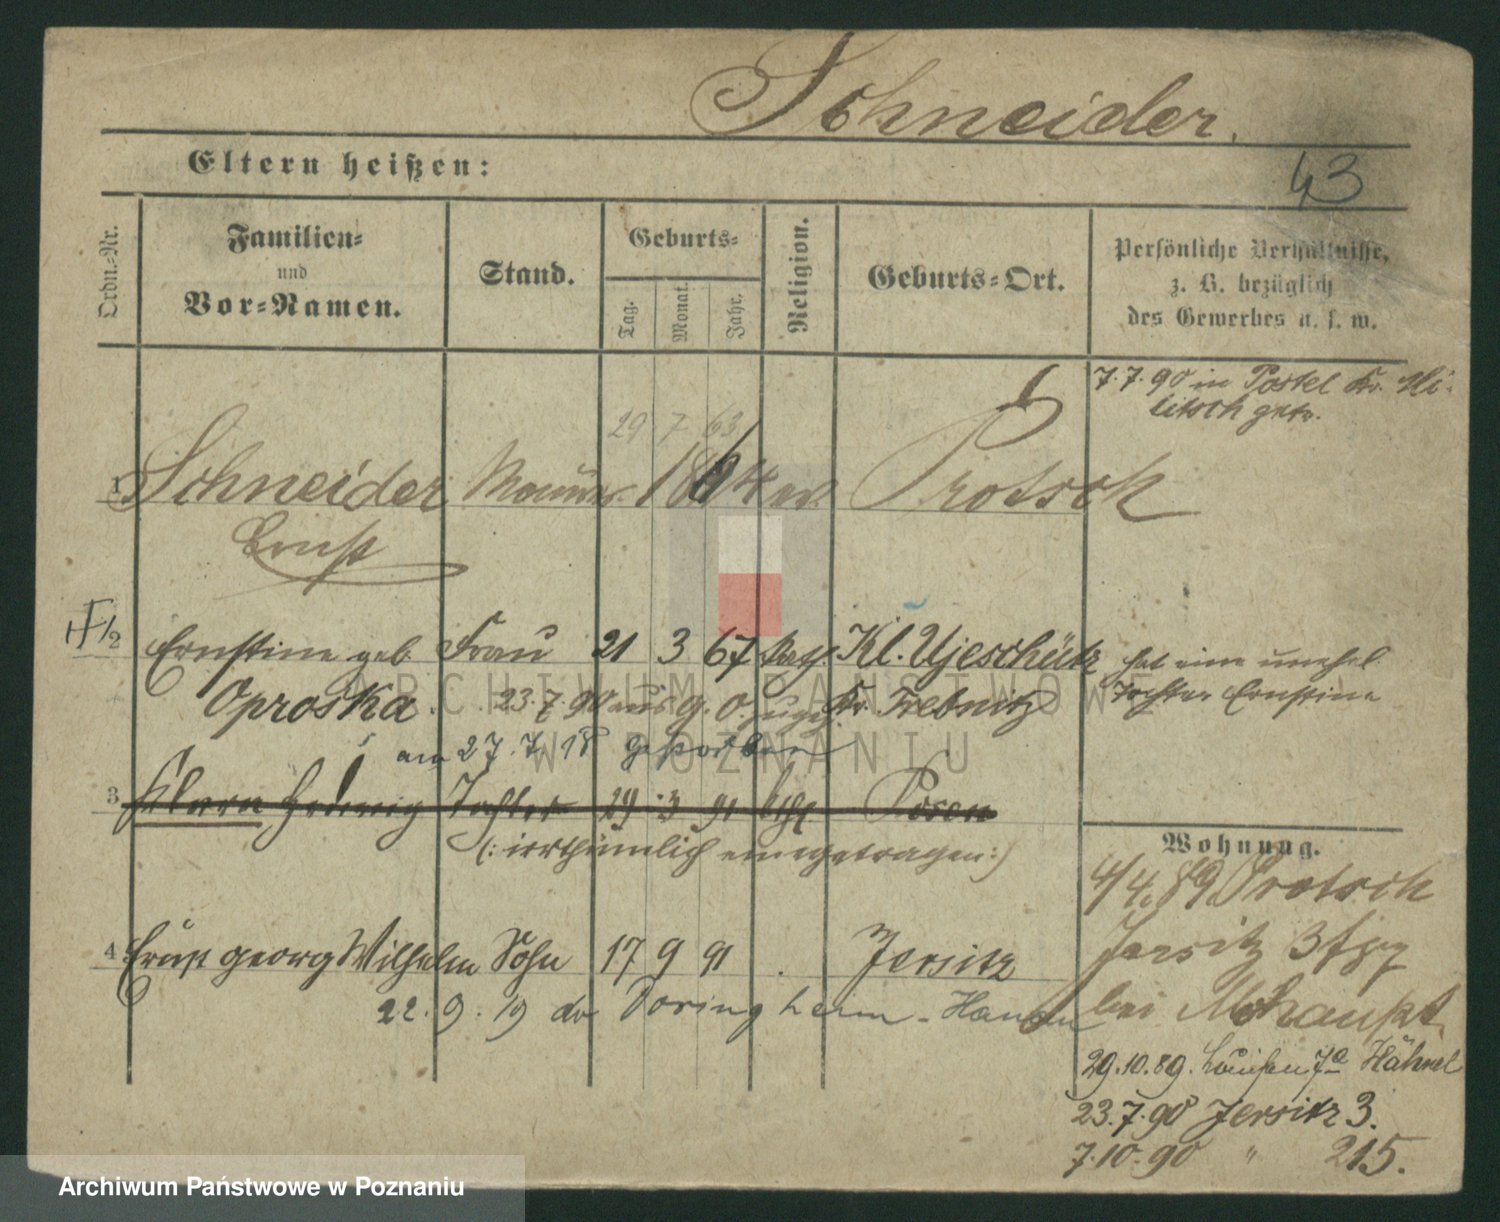 Schneider.
43
Eltern heißen:
Ordn.-Nr.
Familien-
und
Vor-Namen.
Stand.
Geburts-
Tag.
Monat.
Jahr.
Religion.
Geburts-Ort.
Persönliche Verhältnisse,
z. B. bezüglich
des Gewerbes u. s. w.
7.7.90 in Postel Kr. Mi-
litsch getr.
29 7 63
1 Schneider Maurer 1864 ev. Protsch
Ernst
2 Ernstine geb. Frau 21 3 67 Kl. Ujeschütz hat eine unehel.
Oproska. 23.7.90 aus G. O. Kr. Trebnitz Tochter Ernstine
am 27.7.18 gestorben
3 Hedwig Tochter 29 3 91 Posen
(: irrthümlich eingetragen :)
Wohnung.
4/4.89 Protsch
4 Ernst Georg Wilhelm Sohn 17 9 91 Jersitz
Jersitz 3
22.9.19 Döringheim - Hanau
bei
29.10.89.
23.7.90 Jersitz 3.
7.10.90 " 215.
ARCHIWUM PAŃSTWOWE
W POZNANIU
Archiwum Państwowe w Poznaniu